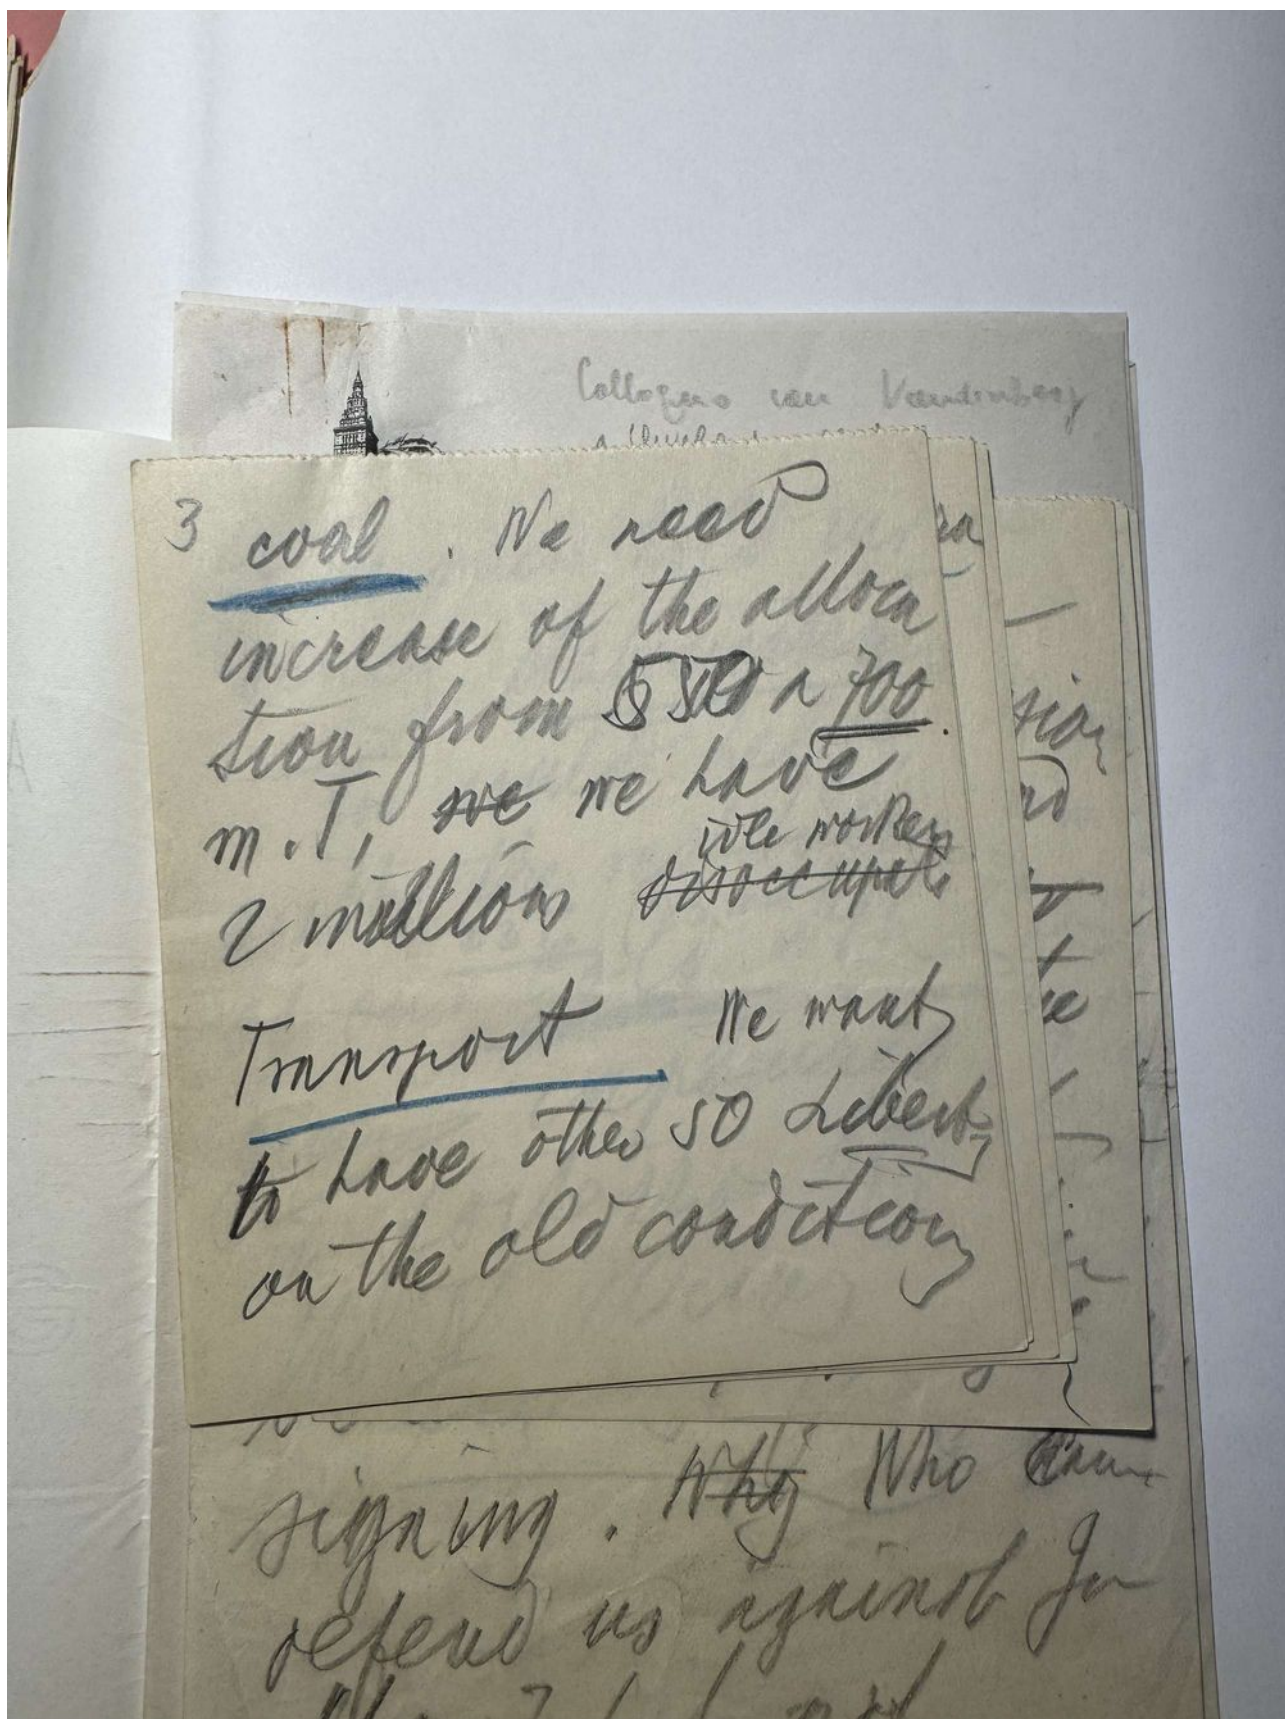 Colloquio con Vandenberg
3 coal. We need
increase of the alloca
tion from 550 a 700
m.T, we we have
idle workers
2 millions disoccupati
Transport We want
to have other 50 Liberty
on the old condition
signing. Why Who can
defend us against